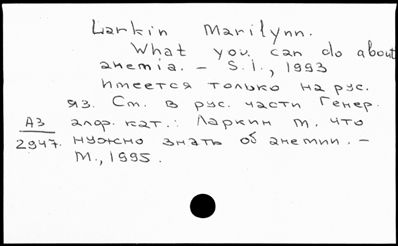 Larkin Marilynn.
What you can do about
anemia. – S.l., 1993
Имеется только на рус.
яз. См. в рус. части Генер.
АЗ алф. кат.: Ларкин М. Что
2947. нужно знать об анемии. –
М., 1995.